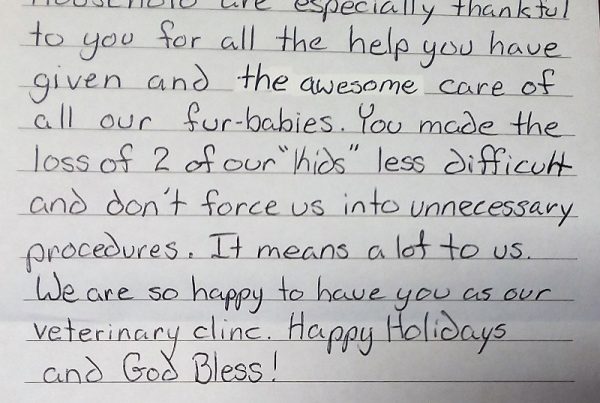 Household are especially thankful
to you for all the help you have
given and the awesome care of
all our fur-babies. You made the
loss of 2 of our "kids" less difficult
and don't force us into unnecessary
procedures. It means a lot to us.
We are so happy to have you as our
veterinary clinc. Happy Holidays
and God Bless!